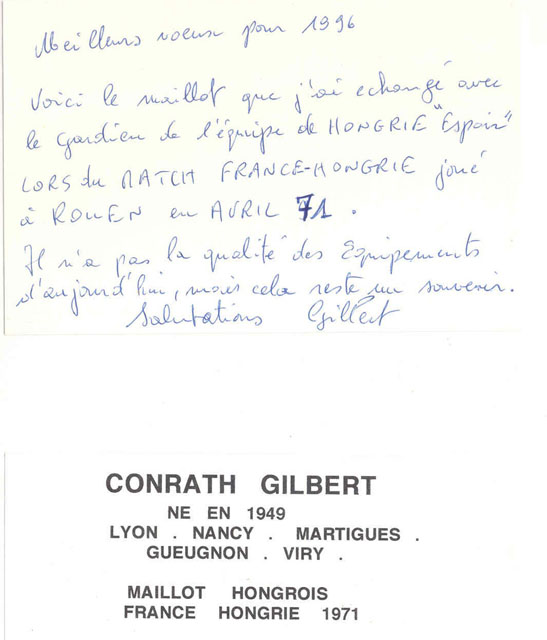 Meilleurs voeux pour 1996
Voici le maillot que j'ai echangé avec
le gardien de l'équipe de HONGRIE "Espoir"
LORS du MATCH FRANCE-HONGRIE joué
à ROUEN en AVRIL 71.
Il n'a pas la qualité des Equipements
d'aujourd'hui, mais cela reste un souvenir.
Salutations Gilbert
CONRATH GILBERT
NE EN 1949
LYON . NANCY . MARTIGUES .
GUEUGNON . VIRY .
MAILLOT HONGROIS
FRANCE HONGRIE 1971